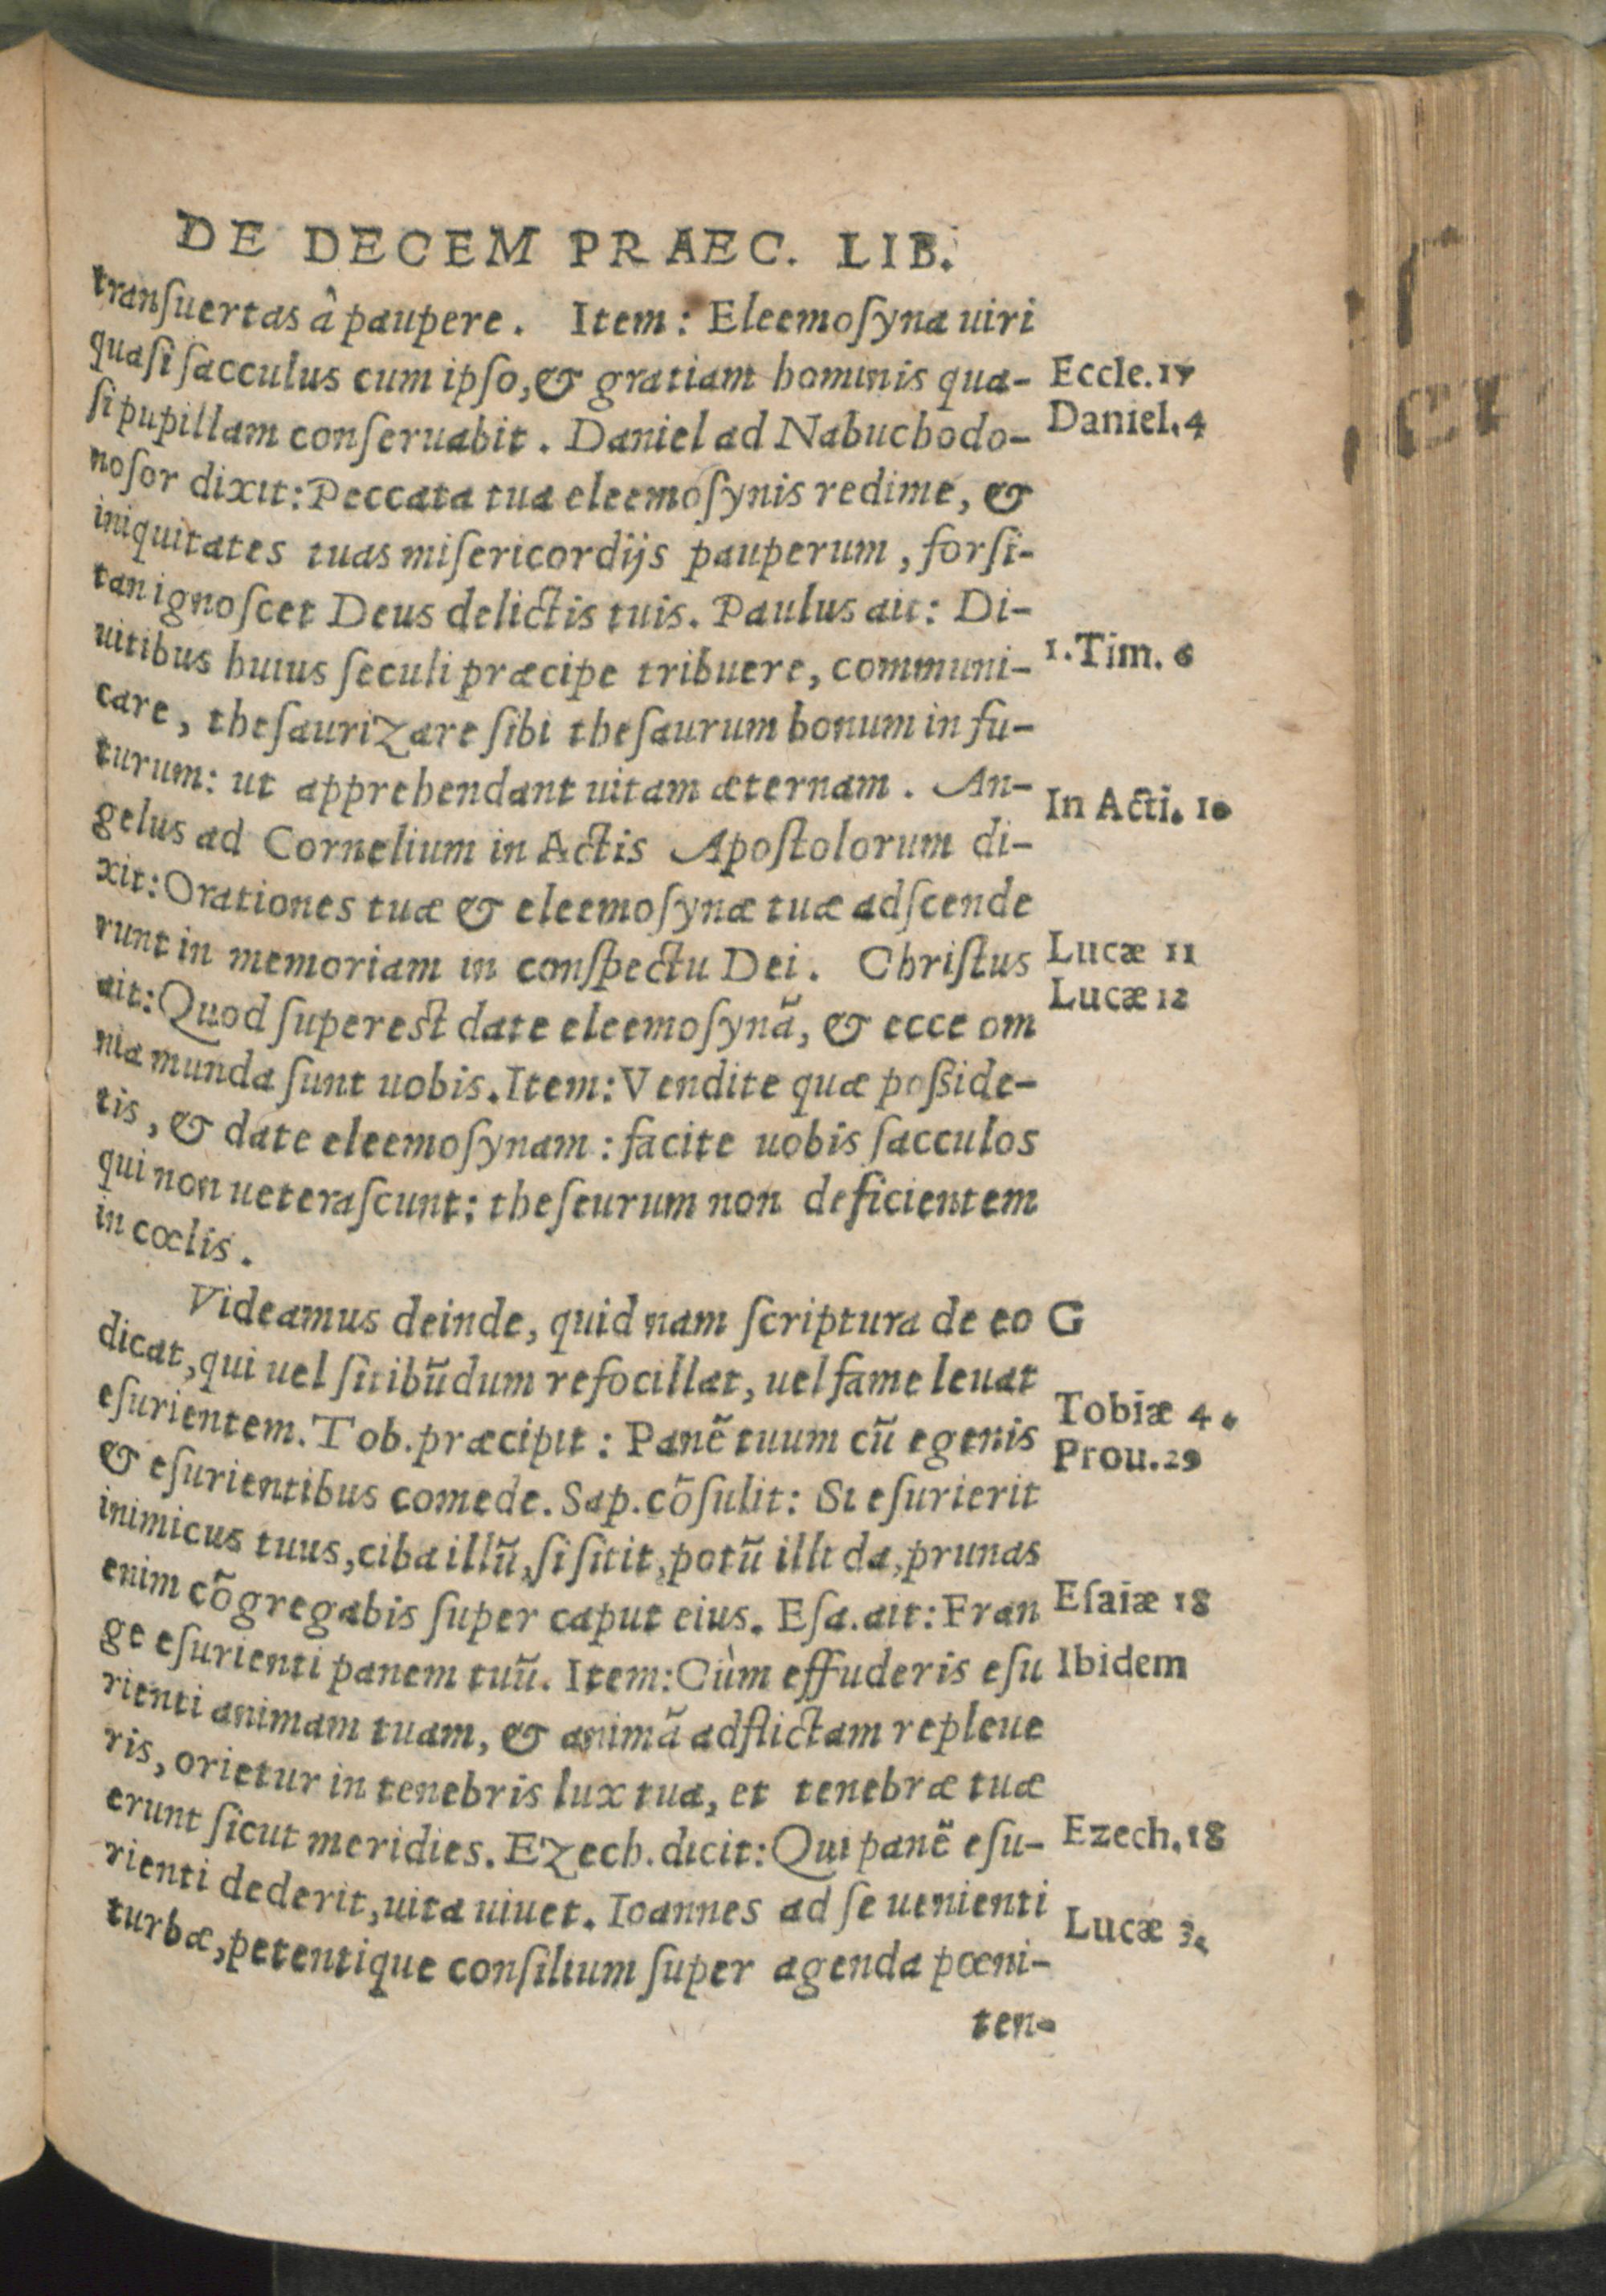 DE DECEM PRAEC. LIB.
tranſuertas â paupere. Item: Eleemoſyna uiri
quaſi ſacculus cum ipſo, & gratiam hominis qua-
ſi pupillam conſeruabit. Daniel ad Nabuchodo-
noſor dixit: Peccata tua eleemoſynis redime, &
iniquitates tuas miſericordijs pauperum, forſi-
tan ignoſcet Deus delictis tuis. Paulus ait: Di-
uitibus huius ſeculi præcipe tribuere, communi-
care, theſaurizare ſibi theſaurum bonum in fu-
turum: ut apprehendant uitam æternam. An-
gelus ad Cornelium in Actis Apoſtolorum di-
xit: Orationes tuæ & eleemoſynæ tuæ adſcende
runt in memoriam in conſpectu Dei. Chriſtus
ait: Quod ſupereſt date eleemoſynã, & ecce om
nia munda ſunt uobis. Item: Vendite quæ poßide-
tis, & date eleemoſynam: facite uobis ſacculos
qui non ueteraſcunt: theſeurum non deficientem
in cœlis.
Videamus deinde, quid nam ſcriptura de eo
dicat, qui uel ſitibũdum refocillat, uel fame leuat
eſurientem. Tob. præcipit: Panẽ tuum cũ egenis
& eſurientibus comede. Sap. cõſulit: Si eſurierit
inimicus tuus, ciba illũ, ſi ſitit, potũ illi da, prunas
enim cõgregabis ſuper caput eius. Eſa. ait: Fran
ge eſurienti panem tuũ. Item: Cùm effuderis eſu
rienti animam tuam, & animã adflictam repleue
ris, orietur in tenebris lux tua, et tenebræ tuæ
erunt ſicut meridies. Ezech. dicit: Qui panẽ eſu-
rienti dederit, uita uiuet. Ioannes ad ſe uenienti
turbæ, petentique conſilium ſuper agenda pœni-
ten-
Eccle. 17
Daniel. 4
1. Tim. 6
In Acti. 10
Lucæ 11
Lucæ 12
G
Tobiæ 4.
Prou. 29
Eſaiæ 18
Ibidem
Ezech. 18
Lucæ 3.